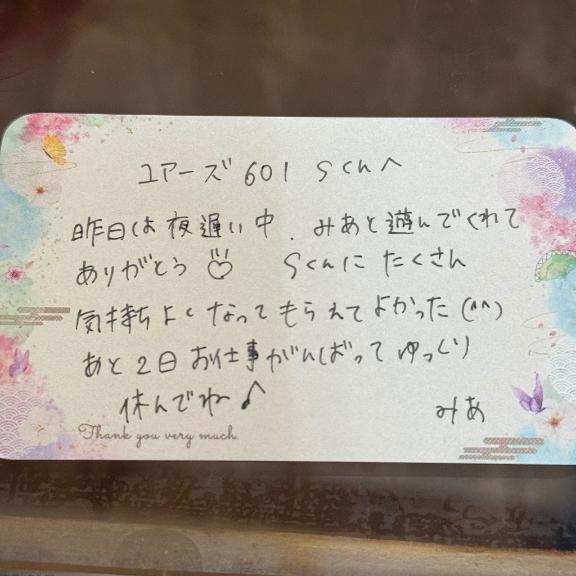 ユアーズ 601 Sくんへ
昨日は夜遅い中、みあと遊んでくれて
ありがとう♡ Sくんにたくさん
気持ちよくなってもらえてよかった(^^)
あと2日お仕事がんばってゆっくり
休んでね♪ みあ
Thank you very much.